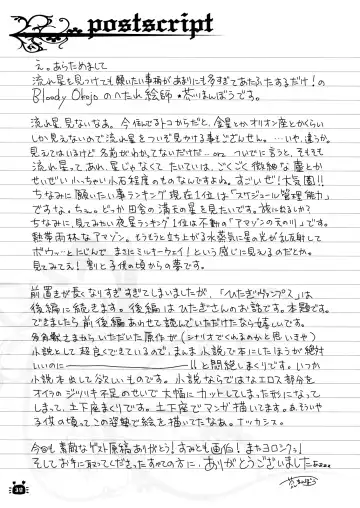 postscript
え。あらためまして
流れ星を見つけても願いたい事柄があまりにも多すぎてあたふたするだけ!の
Bloody Okojoのへたれ絵師★蒼いまんぼうです。
流れ星 見ないなぁ。今住んでるトコからだと、金星とかオリオン座とかくらい
しか見えないので流れ星をついぞ見かける事もございません。…いや、違うか。
見えてはいるけど名前がわかんないだけだ…orz ついでに言うと、そもそも
流れ星ってあれ、星じゃなくて たいていは、ごくごく微細な塵とか
せいぜい小っちゃい小石程度のものなんですよね。すごいぜ!大気圏!!
ちなみに願いたい事ランキング現在1位は「スケジュール管理能力」
ですな。ちっ。どっか田舎の満天の星を見たいです。旅に出るしか?
ちなみに、見てみたい夜星ランキング1位は不動の「アマゾンの天の川」です。
熱帯雨林なアマゾン。もうもうと立ち上がる水蒸気に星の光が乱反射して
ボウッ…とにじんで まさにミルキーウェイ!という感じに見えるのだとか。
見てみてえ!割と子供の頃からの夢です。
前置きが長くなりすぎすぎてしまいましたが、「ひたぎヴァンプス」は
後編に続きます。後編はひたぎさんのお話です。本題です。
できましたら前後編あわせて読んでいただけたなら嬉しいです。
多多敷さまからいただいた原作が(シナリオでくれるのかと思いきや)
小説として超良くできているので、まんま小説で本にしたほうが絶対
いいのに――――!!と悶絶しまくりです。いつか
小説本出して欲しいものです。小説ならではなエロス部分を
オイラのジツリキ不足のせいで大幅にカットしてしまった形になって
しまって、土下座まくりです。土下座でマンガ描いてます。ああそういや
子供の頃ってこの姿勢で絵を描いてたなあ。ナツカシス。
今回も素敵なゲスト原稿ありがとう!すみとも画伯!またヨロシクッ!
そしてお手に取ってくださったすべての方に、ありがとうございました。